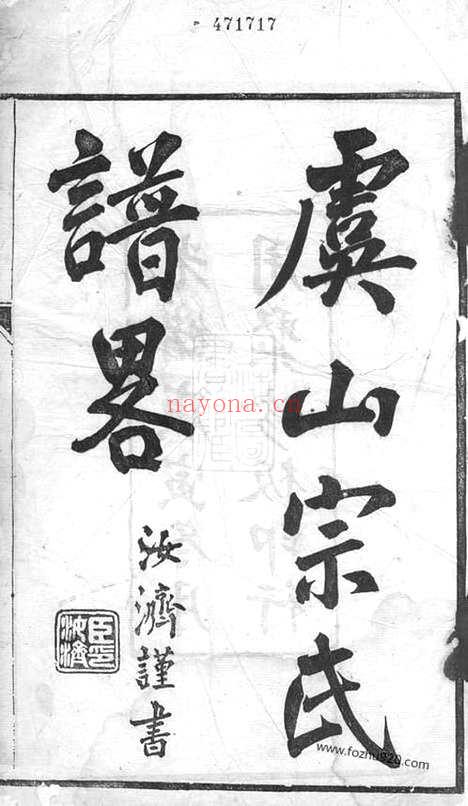 471717
虞山宗氏
譜畧
汝濟謹書
臣印汝濟
nayona.cn
www.fozhu920.com